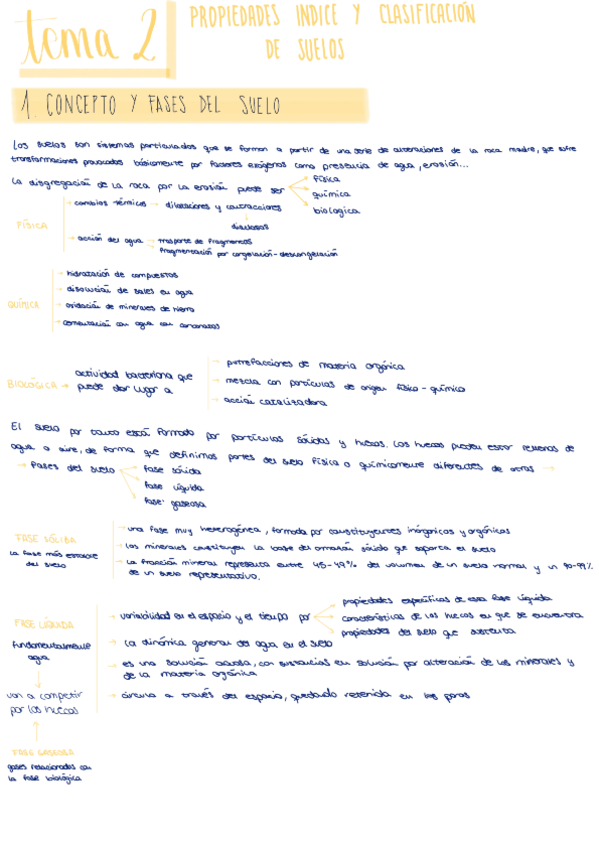 tema 2
PROPIEDADES INDICE Y CLASIFICACIÓN
DE SUELOS
1. CONCEPTO Y FASES DEL SUELO
Los suelos son sistemas particulados que se forman a partir de una serie de alteraciones de la roca madre, que sufre
transformaciones provocadas básicamente por factores exógenos como presencia de agua, erosión...
La disgregación de la roca por la erosión puede ser
física
química
biologica
FÍSICA
→ cambios térmicos → dilataciones y contracciones
diaclasas
→ acción del agua
trasporte de fragmentos
fragmentación por congelación-descongelación
QUÍMICA
→ hidratación de compuestos
→ disolución de sales en agua
→ oxidación de minerales de hierro
→ cementación con agua con carbonatos
BIOLÓGICA → actividad bacteriana que
puede dar lugar a
→ putrefacciones de materia orgánica
→ mezcla con partículas de origen físico-químico
→ acción catalizadora
El suelo por tanto está formado por partículas sólidas y huecos. Los huecos pueden estar rellenos de
agua o aire, de forma que definimos partes del suelo física o químicamente diferentes de otras →
→ fases del suelo
fase sólida
fase líquida
fase gaseosa
FASE SÓLIDA
la fase más estable
del suelo
→ una fase muy heterogénea, formada por constituyentes inórganicos y orgánicos
→ los minerales constituyen la base del armazón sólido que soporta el suelo
→ la fracción mineral representa entre 45-49% del volumen de un suelo normal y un 90-99%
de un suelo representativo.
FASE LÍQUIDA
fundamentalmente
agua
→ variabilidad en el espacio y el tiempo por
propiedades específicas de esa fase líquida
características de los huecos en que se encuentra
propiedades del suelo que sustenta
→ La dinámica general del agua en el suelo
→ es una solución acuosa, con sustancias en solución por alteración de los minerales y
de la materia orgánica
→ circula a través del espacio, quedando retenida en los poros
van a competir
por los huecos
FASE GASEOSA
gases relacionados con
la fase biológica